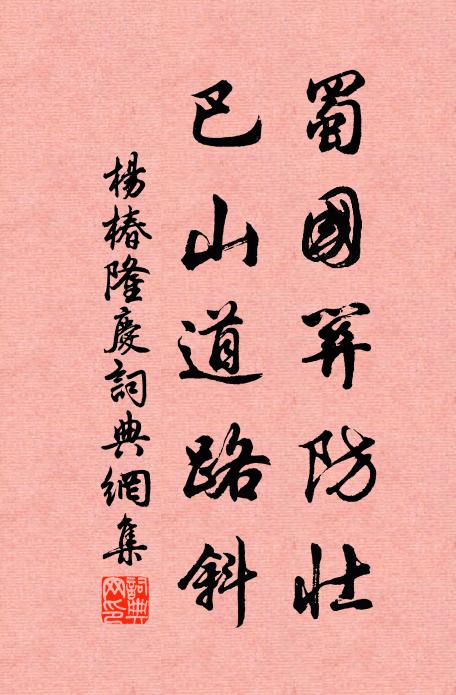 蜀國關防壯
巴山道路斜
楊椿隆慶詞典網集
詞典網印